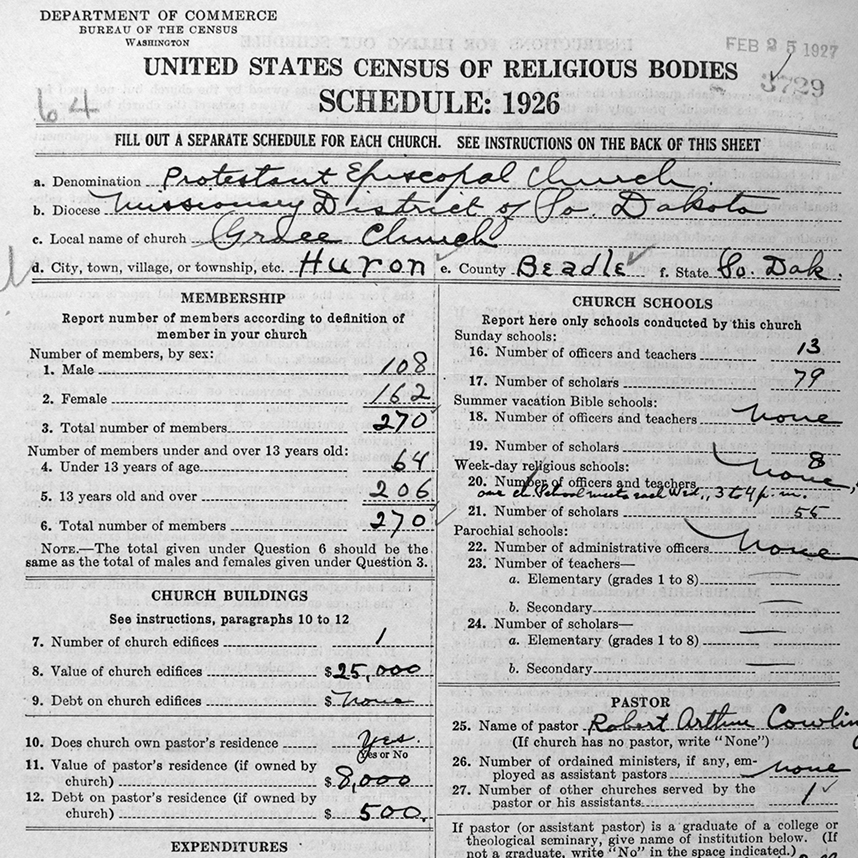 DEPARTMENT OF COMMERCE
BUREAU OF THE CENSUS
WASHINGTON
FEB 25 1927
3729
64
UNITED STATES CENSUS OF RELIGIOUS BODIES
SCHEDULE: 1926
FILL OUT A SEPARATE SCHEDULE FOR EACH CHURCH. SEE INSTRUCTIONS ON THE BACK OF THIS SHEET
a. Denomination Protestant Episcopal Church.
b. Diocese Missionary District of So. Dakota
c. Local name of church Grace Church
d. City, town, village, or township, etc. Huron e. County Beadle f. State So. Dak.
MEMBERSHIP
Report number of members according to definition of
member in your church
Number of members, by sex:
1. Male 108
2. Female 162
3. Total number of members 270
Number of members under and over 13 years old:
4. Under 13 years of age 64
5. 13 years old and over 206
6. Total number of members 270
NOTE.—The total given under Question 6 should be the
same as the total of males and females given under Question 3.
CHURCH BUILDINGS
See instructions, paragraphs 10 to 12
7. Number of church edifices 1
8. Value of church edifices $25,000
9. Debt on church edifices $ none
10. Does church own pastor's residence Yes.
(Yes or No
11. Value of pastor's residence (if owned by
church) $8,000
12. Debt on pastor's residence (if owned by
church) $ 500.
EXPENDITURES
CHURCH SCHOOLS
Report here only schools conducted by this church
Sunday schools:
16. Number of officers and teachers 13
17. Number of scholars 79
Summer vacation Bible schools:
18. Number of officers and teachers none
19. Number of scholars none
Week-day religious schools:
20. Number of officers and teachers 8
one ch. School meets each Wed., 3 to 4 p.m.
21. Number of scholars 55
Parochial schools:
22. Number of administrative officers none
23. Number of teachers—
a. Elementary (grades 1 to 8) —
b. Secondary —
24. Number of scholars—
a. Elementary (grades 1 to 8) —
b. Secondary —
PASTOR
25. Name of pastor Robert Arthur Cowling
(If church has no pastor, write "None")
26. Number of ordained ministers, if any, em-
ployed as assistant pastors none
27. Number of other churches served by the
pastor or his assistants 1
If pastor (or assistant pastor) is a graduate of a college or
theological seminary, give name of institution below. (If
not a graduate, write "No" in the space indicated.)